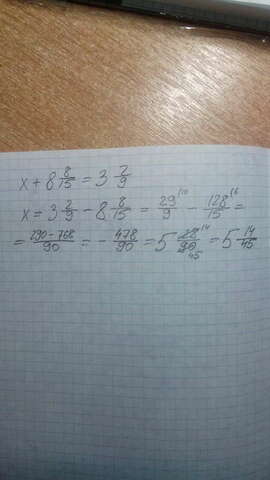 x + 8 8/15 = 3 2/9
x = 3 2/9 - 8 8/15 = 29/9 ^10 - 128/15 ^6 =
= 290-768/90 = - 478/90 = 5 28/90 ^14 45 = 5 14/45